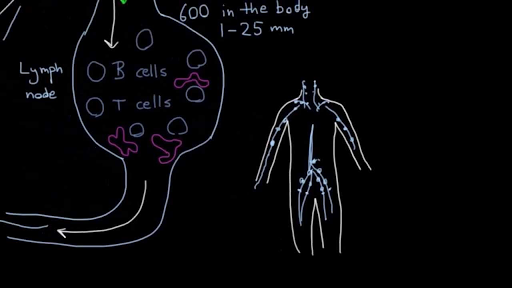 600 in the body
1-25 mm
Lymph
node
B cells
T cells